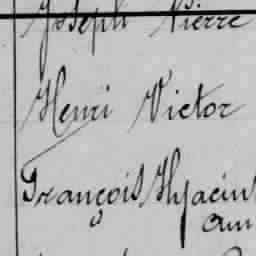 Joseph Pierre
Henri Victor
François Hyacin
am